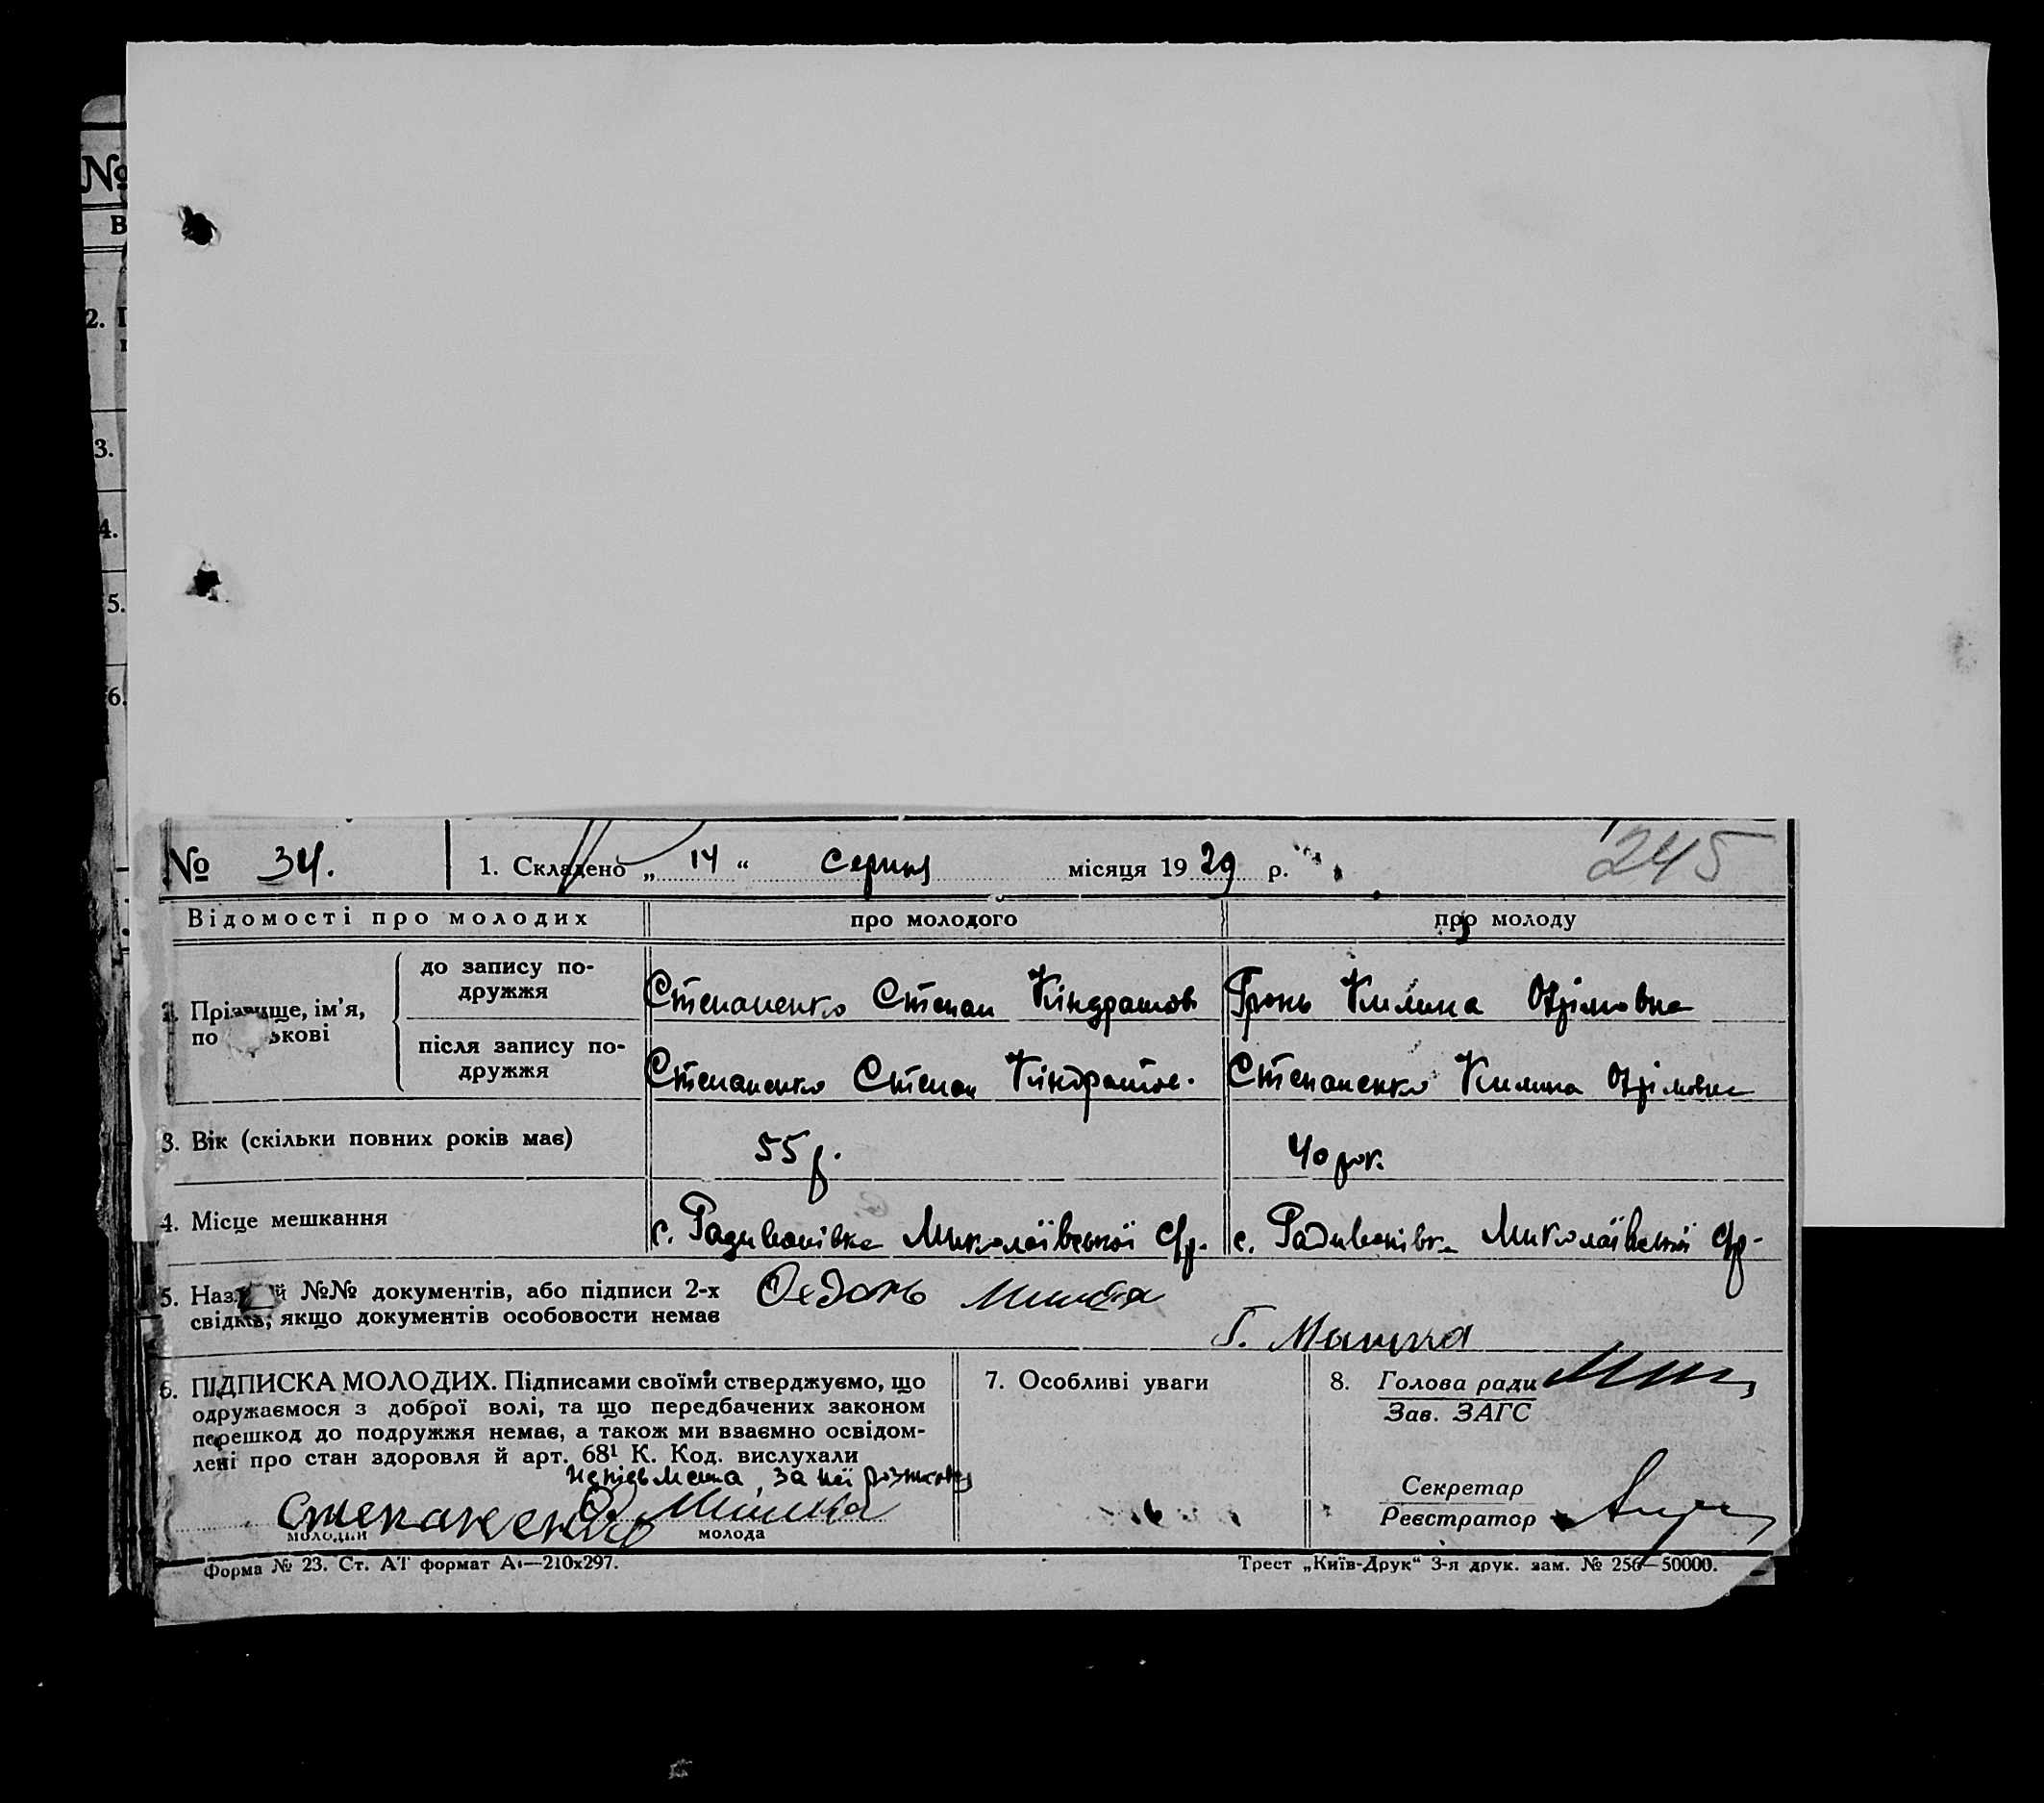 №
В
2. П
3.
4.
5.
6.
№ 34. 1. Складено „ 14 “ серпня місяця 1929 р. 245
Відомості про молодих про молодого про молоду
2. Прізвище, ім’я, по ькові
до запису подружжя Степаненко Степан Кіндратов Гронь Килина
після запису подружжя Степаненко Степан Кіндратов. Степаненко Килина
3. Вік (скільки повних років має) 55 р. 40 рок.
4. Місце мешкання с. Радиванівка Миколаївської с/р. с. Радиванівка Миколаївської с/р.
5. Наз й №№ документів, або підписи 2-х
свідків, якщо документів особовости немає
Г.
6. ПІДПИСКА МОЛОДИХ. Підписами своїми стверджуємо, що
одружаємося з доброї волі, та що передбачених законом
перешкод до подружжя немає, а також ми взаємно освідом-
лені про стан здоровля й арт. 68¹ К. Код. вислухали
неписьмена, за неї
Степаненко
молодий молода
7. Особливі уваги
8. Голова ради
Зав. ЗАГС
Секретар
Реєстратор
Форма № 23. Ст. АТ формат А₁—210x297. Трест „Київ-Друк“ 3-я друк. зам. № 256—50000.